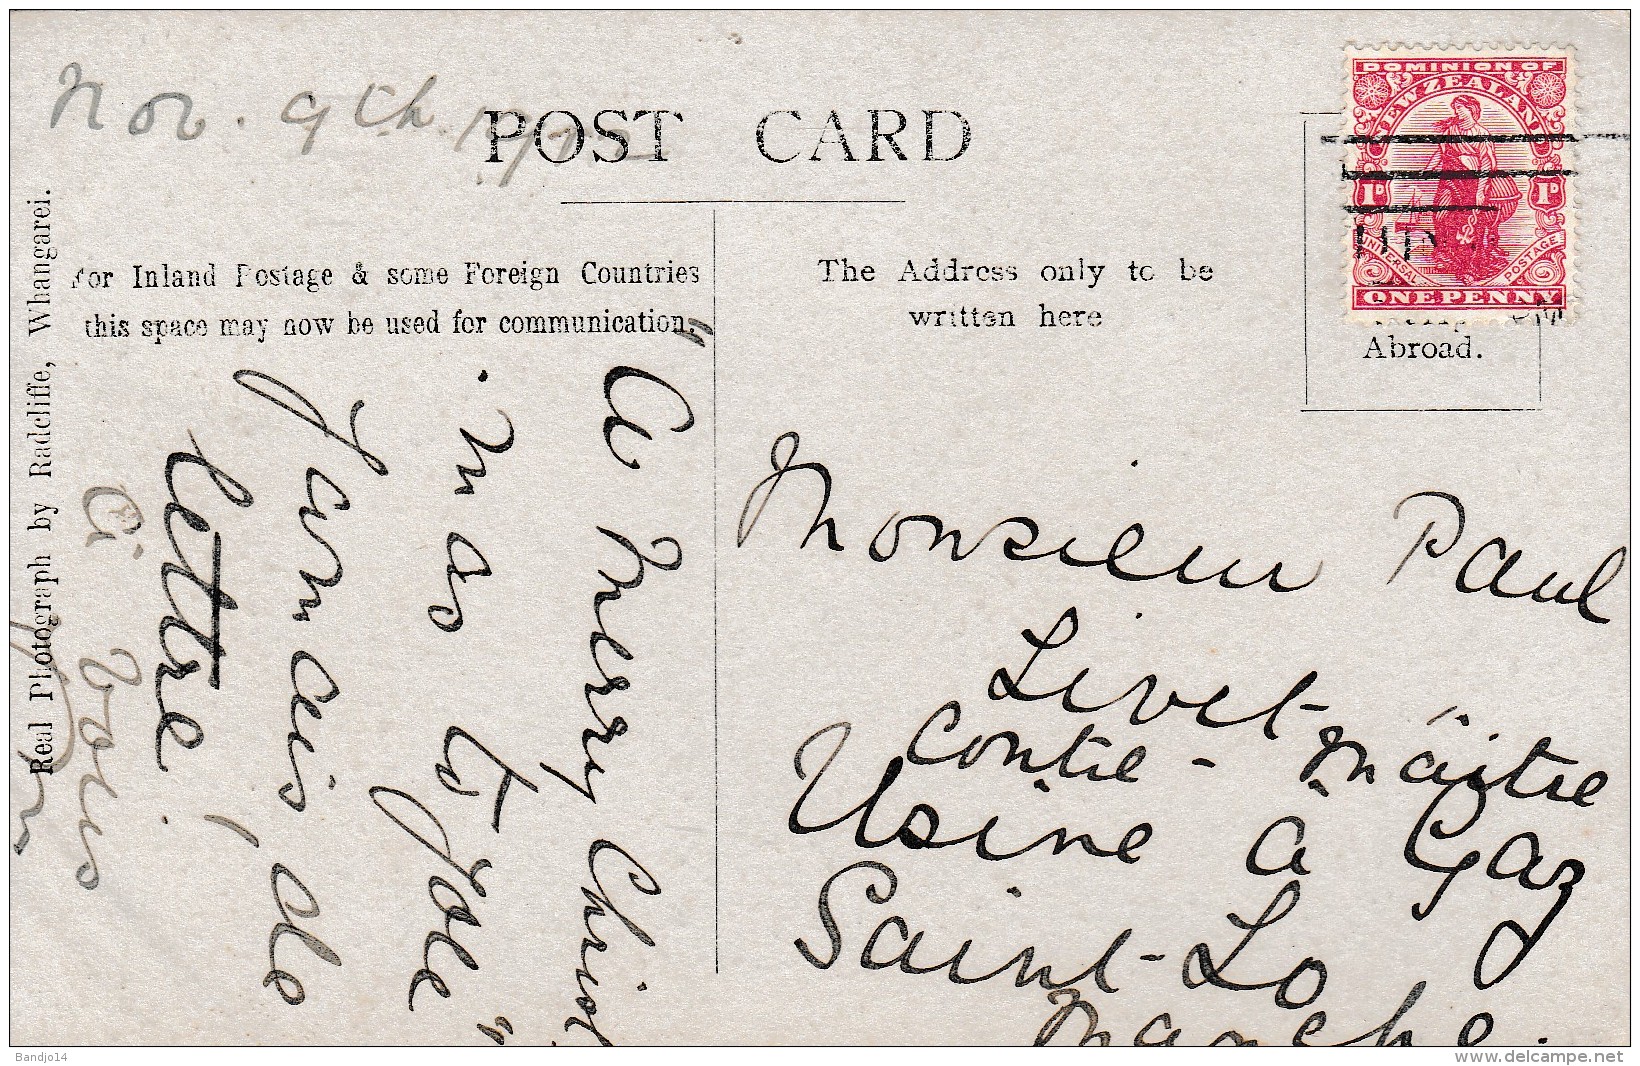 Nov. 9th. 1912
POST CARD
For Inland Postage & some Foreign Countries
this space may now be used for communication.
The Address only to be
written here
Abroad.
DOMINION OF
NEW ZEALAND
1D 1D
UNIVERSAL POSTAGE
ONE PENNY
Real Photograph by Radcliffe, Whangarei.
"A Merry Christ-
mas to you"
Jamais, de
lettre!
à vous
Monsieur Paul
Livet-
Contre-maître
Usine à Gaz
Saint-Lo
Manche.
Bandjo14
www.delcampe.net